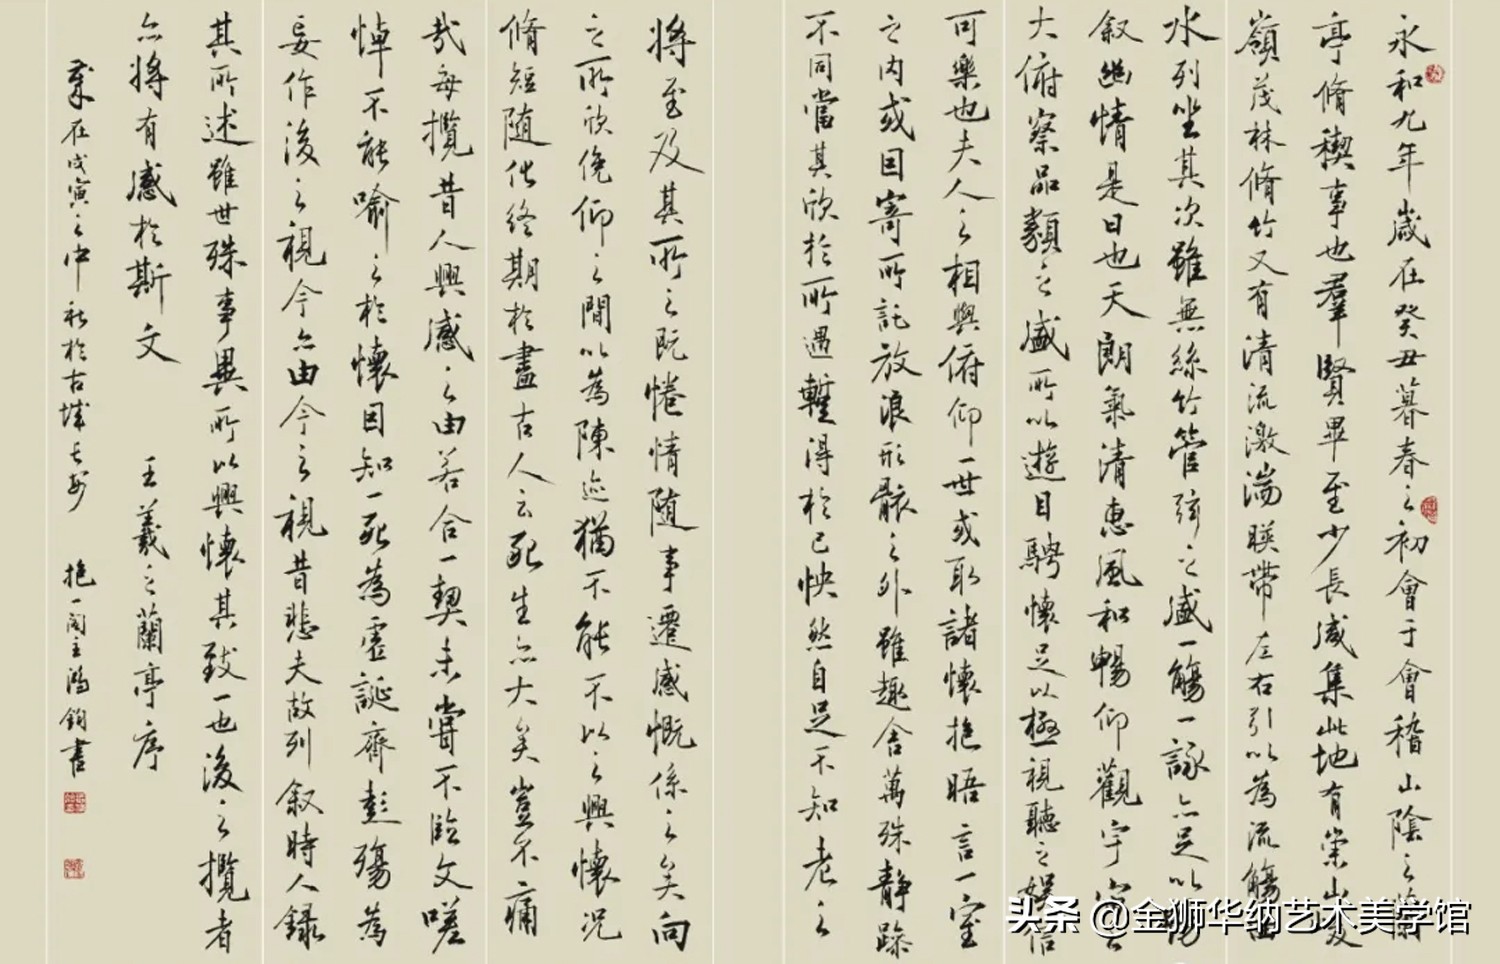 永和九年歲在癸丑暮春之初會于會稽山陰之蘭
亭脩稧事也羣賢畢至少長咸集此地有崇山峻
嶺茂林脩竹又有清流激湍暎帶左右引以為流觴曲
水列坐其次雖無絲竹管弦之盛一觴一詠亦足以暢
叙幽情是日也天朗氣清惠風和暢仰觀宇宙之
大俯察品類之盛所以遊目騁懷足以極視聽之娛信
可樂也夫人之相與俯仰一世或取諸懷抱晤言一室
之内或因寄所託放浪形骸之外雖趣舍萬殊靜躁
不同當其欣於所遇蹔得於己怏然自足不知老之
將至及其所之既惓情随事遷感慨係之矣向
之所欣俛仰之間以為陳迹猶不能不以之興懷况
脩短随化終期於盡古人云死生亦大矣豈不痛
哉每攬昔人興感之由若合一契未嘗不臨文嗟
悼不能喻之於懷固知一死為虛誕齊彭殤為
妄作後之視今亦由今之視昔悲夫故列叙時人錄
其所述雖世殊事異所以興懷其致一也後之攬者
亦將有感於斯文 王羲之蘭亭序
歲在戊寅之中秋於古城長安 抱一閣主鴻鈞書
头条 @金狮华纳艺术美学馆